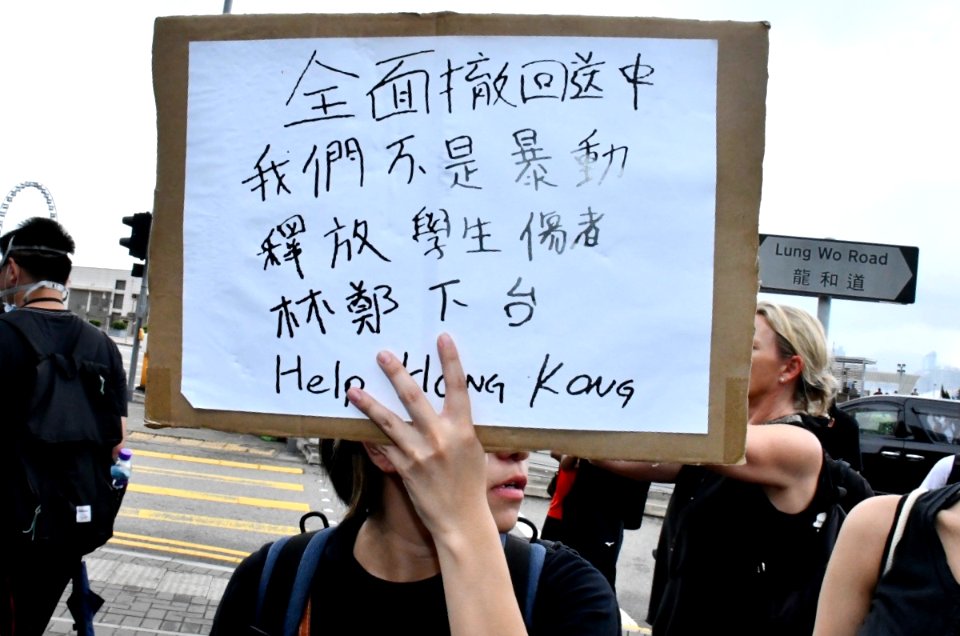 全面撤回送中
我們不是暴動
釋放學生傷者
林鄭下台
Help Hong Kong
Lung Wo Road
龍和道